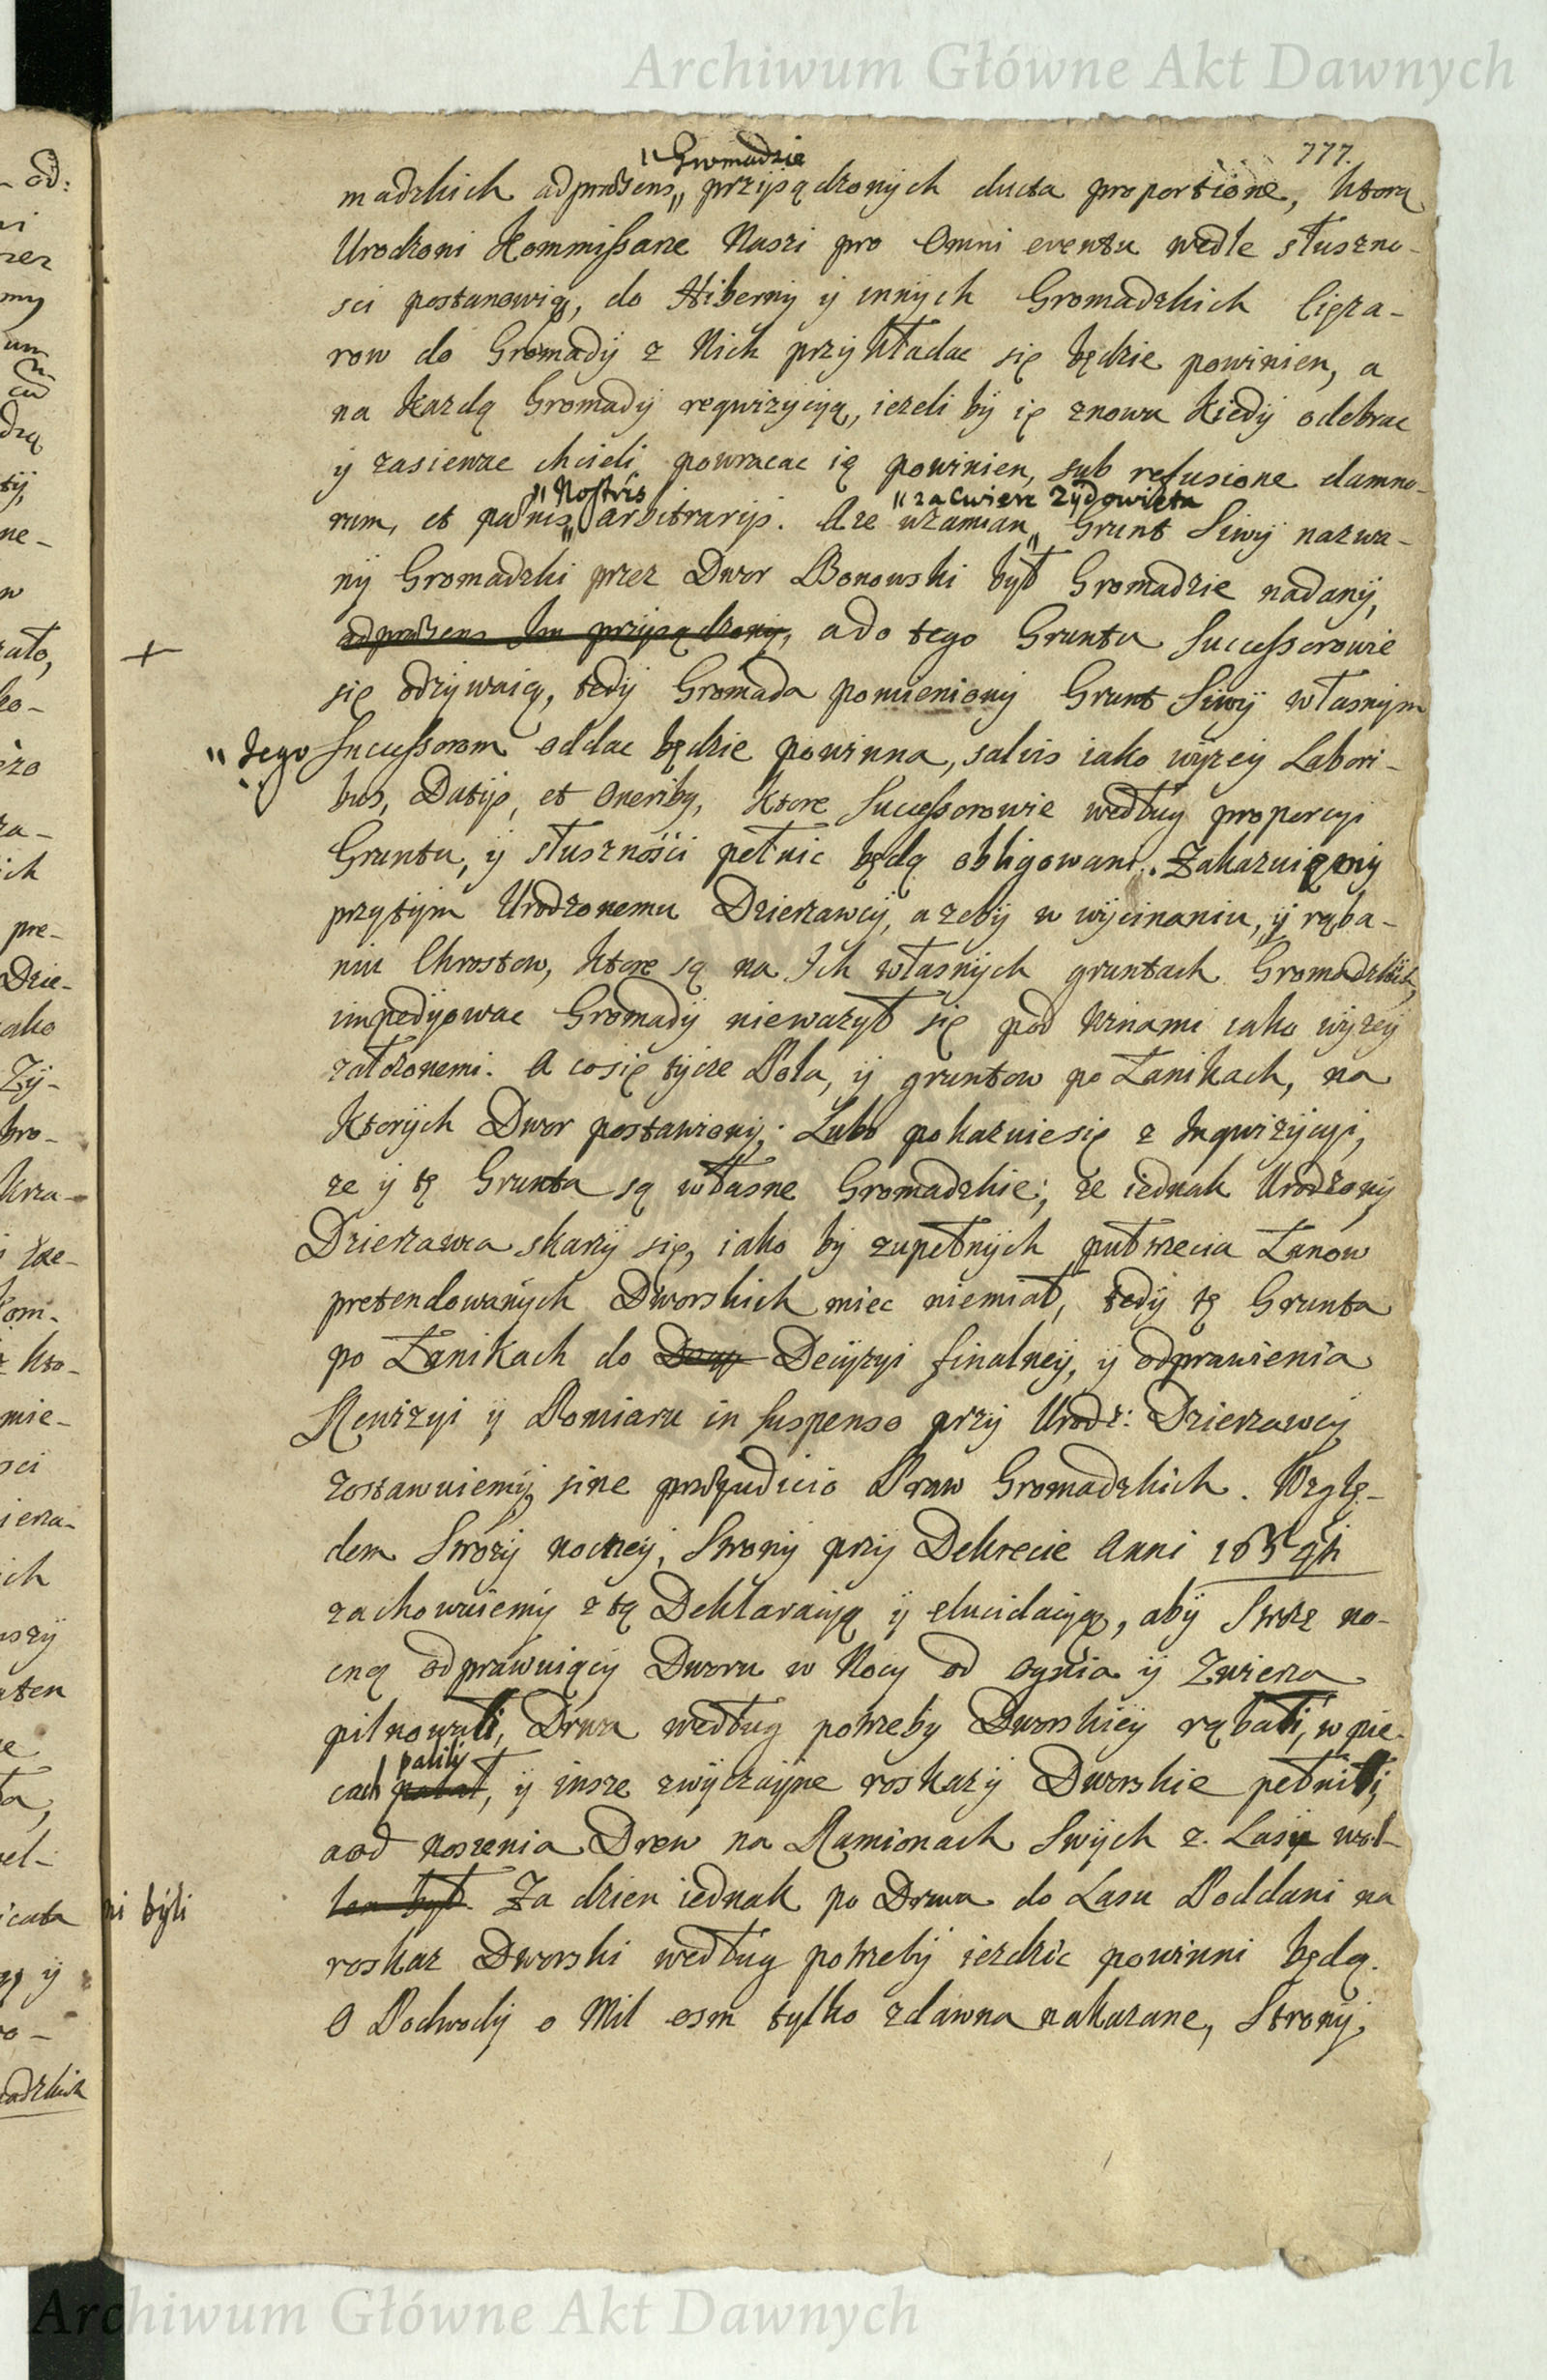 Archiwum Główne Akt Dawnych
777.
"Gromadzie
madzkich adpraesens,, przysądzonych ducta proportione, ktorą
Urodzoni Kommissarze Naszi pro Omni eventu wedle słuszno-
sci postanowią, do Hiberny y innych Gromadzkich Cięza-
row do Gromady z Nich przykładac się będzie powinien, a
na kazdą Gromady reqwizycyą, iezeli by ię znowu kiedy odebrac
y zasiewac chcieli powracac ią powinien, sub refusione damno-
"Nostris "za Cwierc Zydowięta
rum, et paenis,, arbitrarijs. A ze wzamian,, Grunt Siwy nazwa-
ny Gromadzki przez Dwor Bonowski był Gromadzie nadany,
adpraesens Im przysądzony, ado tego Gruntu Successorowie
+
się odzywaią, tedy Gromada pomieniony Grunt Siwy własnym
"tego Successorom oddac będzie powinna, salvis iako wyzey Labori-
bus, Datijs, et Oneriby, ktore Successorowie według proporcyi
Gruntu, y słusznosci pełnic będą obligowani. Zakazuięmy
przytym Urodzonemu Dzierzawcy, azeby w wycinaniu, y rąba-
niu Chrostow, ktore są na Ich własnych gruntach Gromadzkich,
impedyowac Gromady niewazył się pod winami iako wyzey
załozonemi. A cosię tycze Pola, y gruntow po Łanikach, na
ktorych Dwor postawiony; Lubo pokazuiesię z Inqwizycyi,
ze y tę Grunta są własne Gromadzkie; ze iednak Urodzony
Dzierzawca skarzy się, iako by zupełnych pułtrzecia Łanow
pretendowanych Dworskich miec niemiał, tedy tę Grunta
po Łanikach do Decy Decyzyi finalney, y odprawienia
Rewizyi y Pomiaru in suspenso przy Urodz: Dzierzawcy
zostawuiemy sine praejudicio Praw Gromadzkich. Wzglę-
dem Strozy nocney, Strony przy Dekrecie Anni
zachowuiemy z tą Deklaracyą y elucidacyą, aby Stroz no-
cną odprawuiący Dworu w Nocy od ognia y Zwierza
pilnowali, Drwa według potrzeby Dworskiey rąbali, w pie-
palily
cach palał, y insze zwyczayne roskazy Dworskie pełnili,
aod noszenia Drew na Ramionach Swych z Lasu wol-
ni byli
len był. Za dzien iednak po Drwa do Lasu Poddani na
roskaz Dworski według potrzeby iezdzic powinni będą.
O Podwody o Mil osm tylko zdawna nakazane, Strony,
Archiwum Główne Akt Dawnych